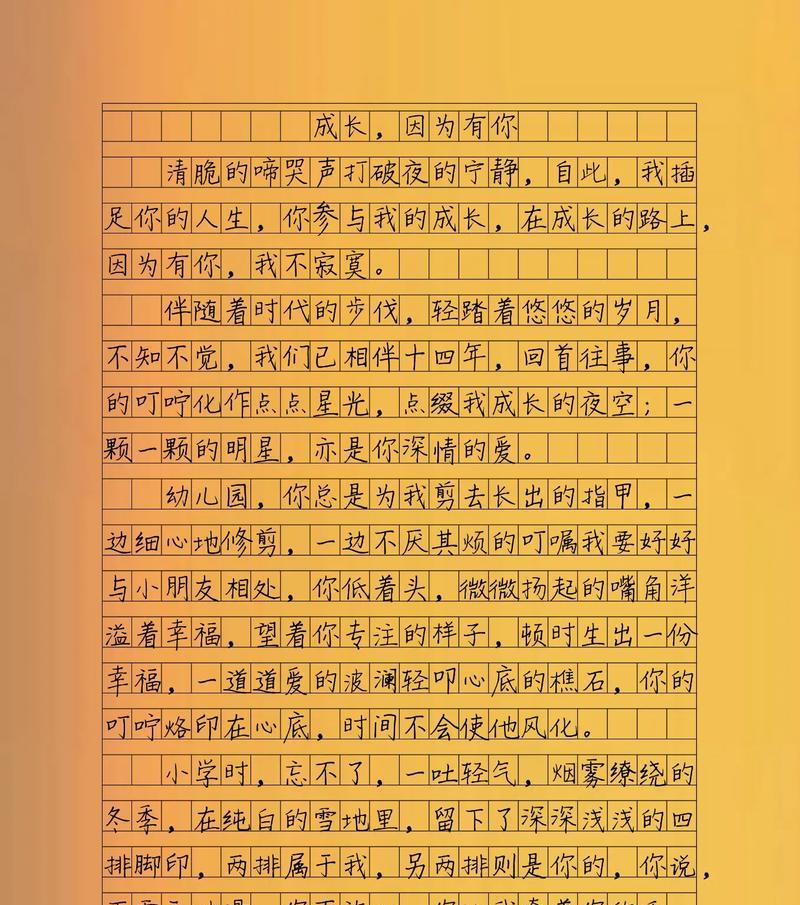 成长，因为有你
清脆的啼哭声打破夜的宁静，自此，我插
足你的人生，你参与我的成长，在成长的路上，
因为有你，我不寂寞。
伴随着时代的步伐，轻踏着悠悠的岁月，
不知不觉，我们已相伴十四年，回首往事，你
的叮咛化作点点星光，点缀我成长的夜空；一
颗一颗的明星，亦是你深情的爱。
幼儿园，你总是为我剪去长出的指甲，一
边细心地修剪，一边不厌其烦的叮嘱我要好好
与小朋友相处，你低着头，微微扬起的嘴角洋
溢着幸福，望着你专注的样子，顿时生出一份
幸福，一道道爱的波澜轻叩心底的樵石，你的
叮咛烙印在心底，时间不会使他风化。
小学时，忘不了，一吐轻气，烟雾缭绕的
冬季，在纯白的雪地里，留下了深深浅浅的四
排脚印，两排属于我，另两排则是你的，你说，